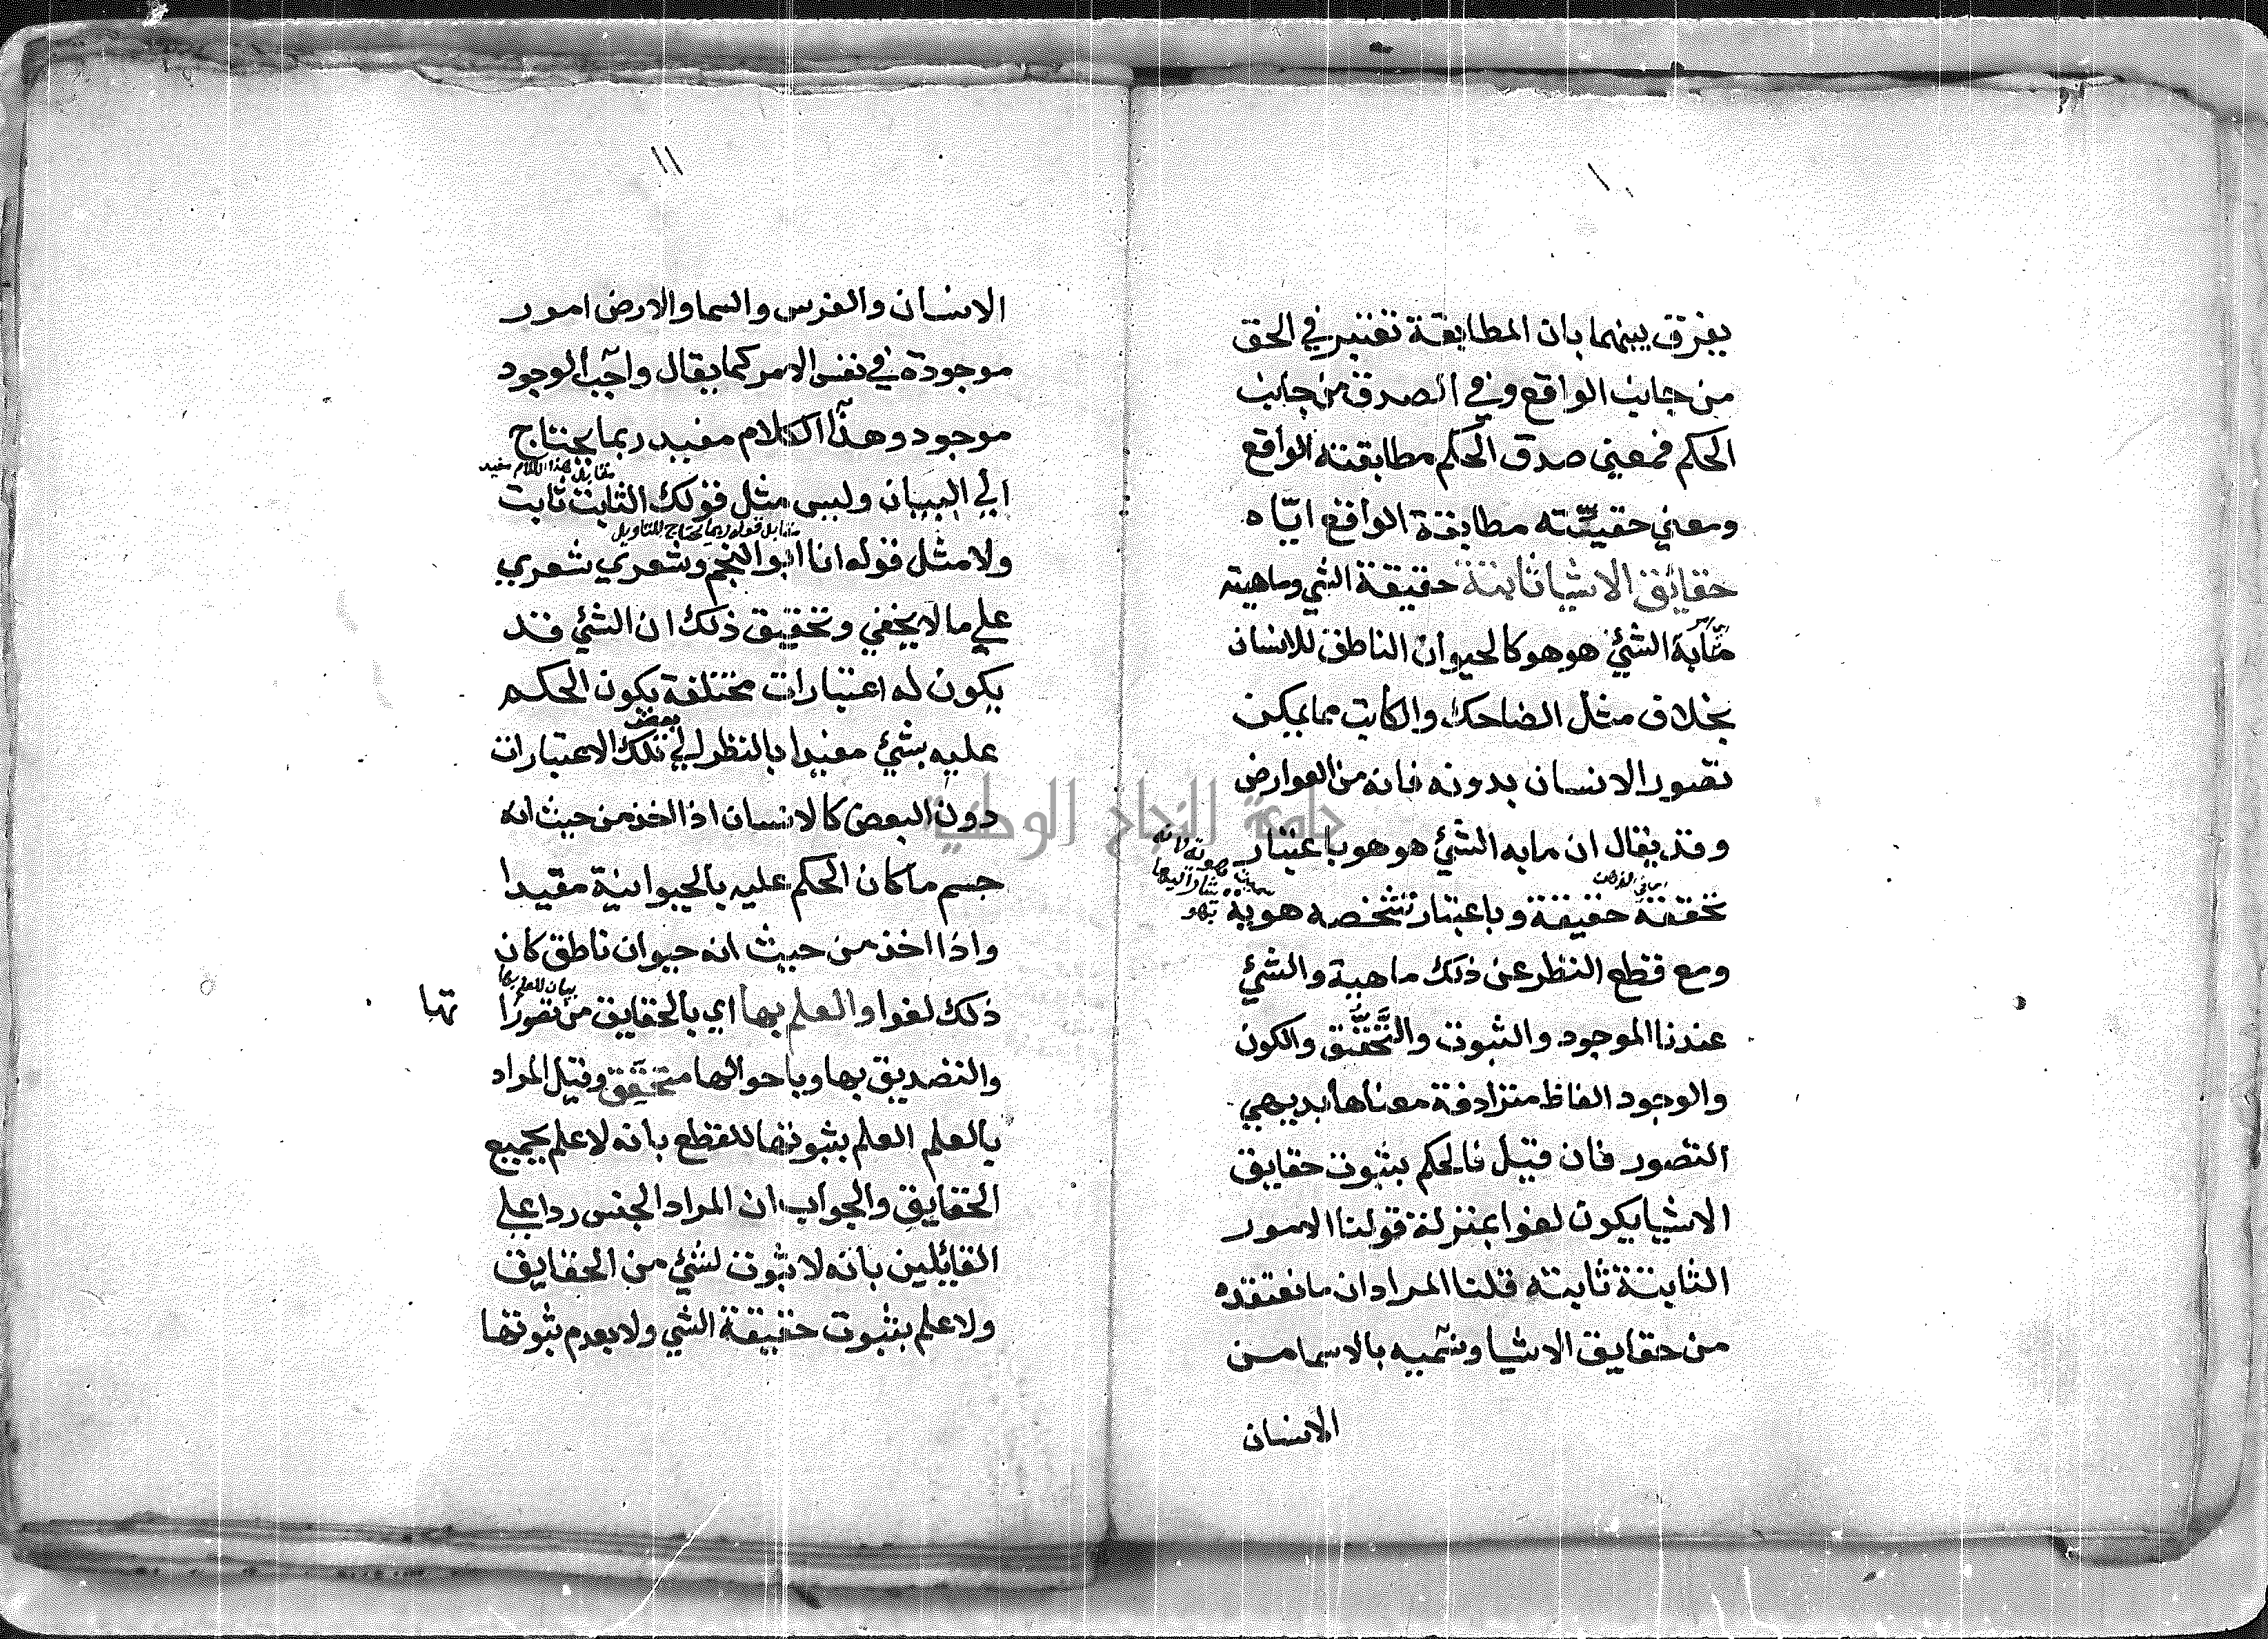 ١٠
يفرق بينهما بان المطابقة تعتبر في الحق
من جانب الواقع وفي الصدق من جانب
الحكم فمعني صدق الحكم مطابقته الواقع
ومعني حقيّته مطابقة الواقع ايّاه
حقايق الاشيا ثابتة حقيقة الشي وماهيته
مابه الشئ هو هو كالحيوان الناطق للانسان
بخلاف مثل الضاحك والكاتب مما يمكن
تصور الانسان بدونه فانه من العوارض
وقد يقال ان مابه الشئ هو هو باعتبار
تحققه حقيقة وباعتبار تشخصه هوية
ومع قطع النظر عن ذلك ماهية والشئ
عندنا الموجود والثبوت والتحقق والكون
والوجود الفاظ مترادفة معناها بديهي
التصور فان قيل فالحكم بثبوت حقايق
الاشيا يكون لغوا بمنزلة قولنا الامور
الثابتة ثابتة قلنا المراد ان ما نعتقده
من حقايق الاشيا ونسميه بالاسما من
الانسان
١١
الانسان والفرس والسما والارض امور
موجودة في نفس الامر كما يقال واجب الوجود
موجود وهذا الكلام مفيد ربما يحتاج
مقابل هذا الكلام مفيد
الي البيان وليس مثل قولك الثابت ثابت
مقابل قوله ربما يحتاج للتاويل
ولا مثل قوله انا ابو النجم وشعري شعري
علي ما لا يخفي وتحقيق ذلك ان الشئ قد
يكون له اعتبارات مختلفة يكون الحكم
بعض
عليه بشئ مفيدا بالنظر الي تلك الاعتبارات
دون البعض كالانسان اذا اخذ من حيث انه
جسم ما كان الحكم عليه بالحيوانية مفيدا
واذا اخذ من حيث انه حيوان ناطق كان
بيان للعلم بها
ذلك لغوا والعلم بها اي بالحقايق من تصورا
تها
والتصديق بها وباحوالها متحقق وقيل المراد
بالعلم العلم بثبوتها للقطع بانه لا علم بجميع
الحقايق والجواب ان المراد الجنس ردا علي
القايلين بانه لا ثبوت لشئ من الحقايق
ولا علم بثبوت حقيقة الشي ولا بعدم ثبوتها
جامعة النجاح الوطنية